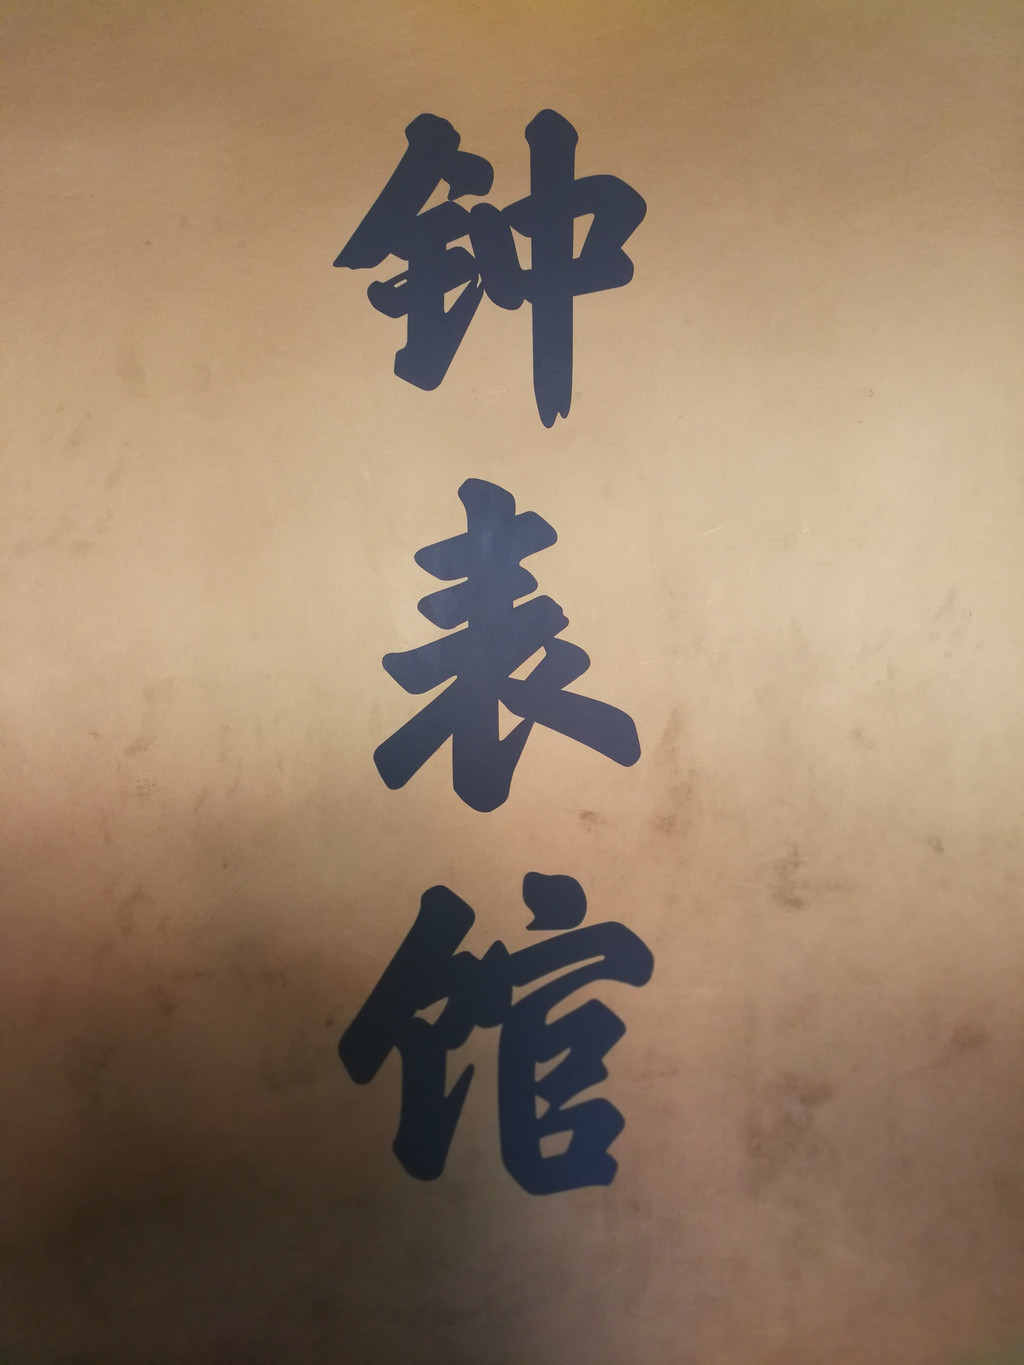 钟表馆